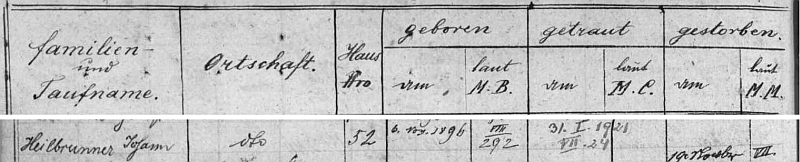 geboren getraut gestorben.
familien-
und
Taufname.
Ortschaft.
Haus
Nro
am
laut
M.B.
am
laut
M.C.
am
laut
M.M.
Heilbrunner Johann dto 52 6. 1896 VIII 292 31. I. 1921 VII. 24 VII.